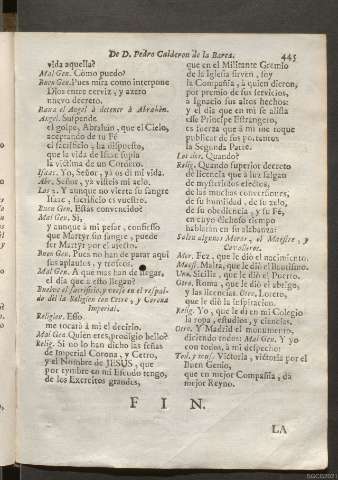 De D. Pedro Calderon de la Barca. 445
vida aquella?
Mal Gen. Cómo puedo?
Buen Gen. Pues mira como interpone
Dios entre cerviz, y azero
nuevo decreto.
Baxa el Angel à detener à Abrahàn.
Angel. Suspende
el golpe, Abrahàn, que el Cielo,
aceptando de tu Fè
el sacrificio, ha dispuesto,
que la vida de Isac supla
la victima de un Cordero.
Isaac. Yo, Señor, ya os di mi vida.
Abr. Señor, ya visteis mi zelo.
Los 2. Y aunque no vierta su sangre
Isaac, sacrificio es vuestro.
Buen Gen. Estàs convencido?
Mal Gen. Si,
y aunque à mi pesar, confiesso
que Martyr sin sangre, puede
ser Martyr por el afecto.
Buen Gen. Pues no han de parar aqui
sus aplausos, y trofeos.
Mal Gen. A que mas han de llegar,
el dia que à esso llegan?
Buelve el sacrificio, y vese en el respal-
do del la Religion con Cetro, y Corona
Imperial.
Religion. Esso
me tocarà à mi el decirlo.
Mal Gen. Quien eres, prodigio bello?
Relig. Si no lo han dicho las señas
de Imperial Corona, y Cetro,
y el Nombre de JESUS, que
por tymbre en mi Escudo tengo,
de los Exercitos grandes,
que en el Militante Gremio
de la Iglesia sirven, soy
la Compañia, à quien dieron,
por premio de sus servicios,
à Ignacio sus altos hechos:
y el dia que en mi se alista
esse Principe Estrangero,
es fuerza que à mi me toque
publicar de sus portentos
la Segunda Parte.
Los dos. Quando?
Relig. Quando superior decreto
de licencia que à luz salgan
de mysteriosos efectos,
de las muchas conversiones,
de su humildad, de su zelo,
de su obediencia, y su Fè,
en cuyo dichoso tiempo
hablaràn en su alabanza:
Salen algunos Moros, el Maestre, y
Cavalleros.
Mor. Fez, que le diò el nacimiento.
Maest. Malta, que le diò el Bautismo.
Uno. Sicilia, que le diò el Puerto.
Otro. Roma, que le diò el abrigo,
y las licencias. Otro. Loreto,
que le diò la inspiracion.
Relig. Yo, que le di en mi Colegio
la ropa, estudios, y ciencias.
Otro. Y Madrid el monumento,
diciendo todos: Mal Gen. Y yo
con todos, à mi despecho:
Tod. y mus. Victoria, victoria por el
Buen Genio,
que en mejor Compañia, dà
mejor Reyno.
FIN.
LA